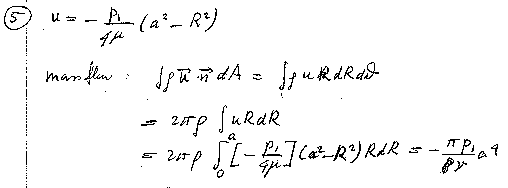 ⑤ u = - p₁/4μ (a² - R²)
mass flow : ∫ρ u⃗ n⃗ dA = ∫ρ u R dR dϑ
= 2πρ ∫ u R dR
= 2πρ ∫₀ᵃ [- p₁/4μ] (a² - R²) R dR = - πp₁/8ν a⁴